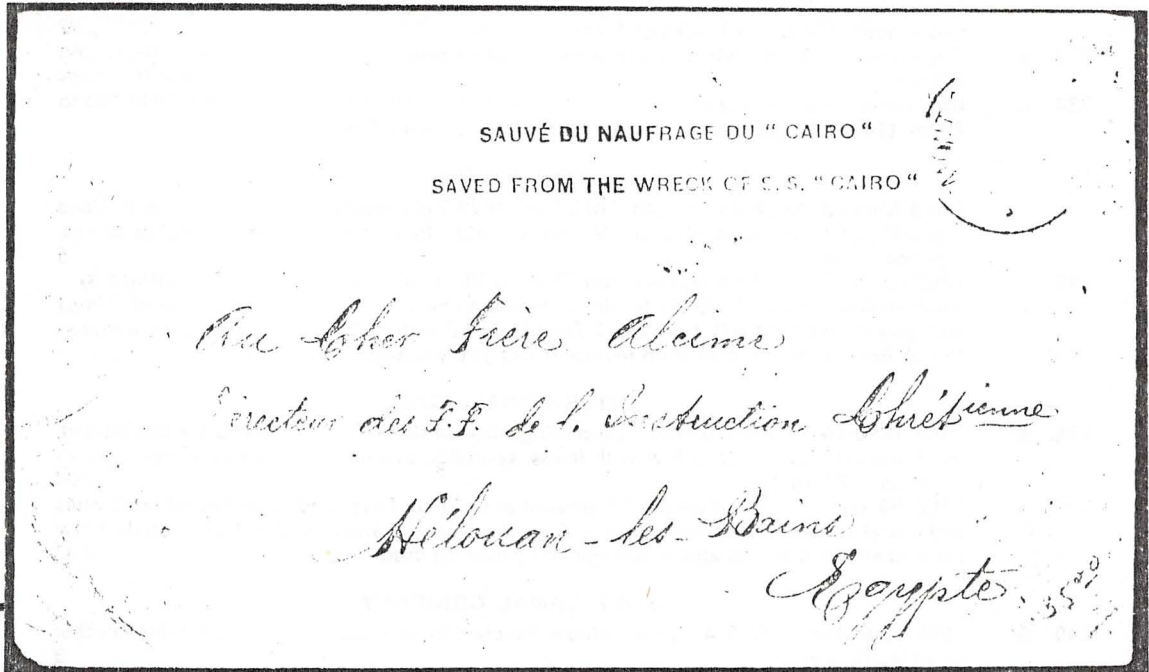 SAUVÉ DU NAUFRAGE DU " CAIRO "
SAVED FROM THE WRECK OF S. S. " CAIRO "
Au Cher Frère Alcime
Directeur des F.F. de l'Instruction Chrétienne
Hélouan-les-Bains
Egypte